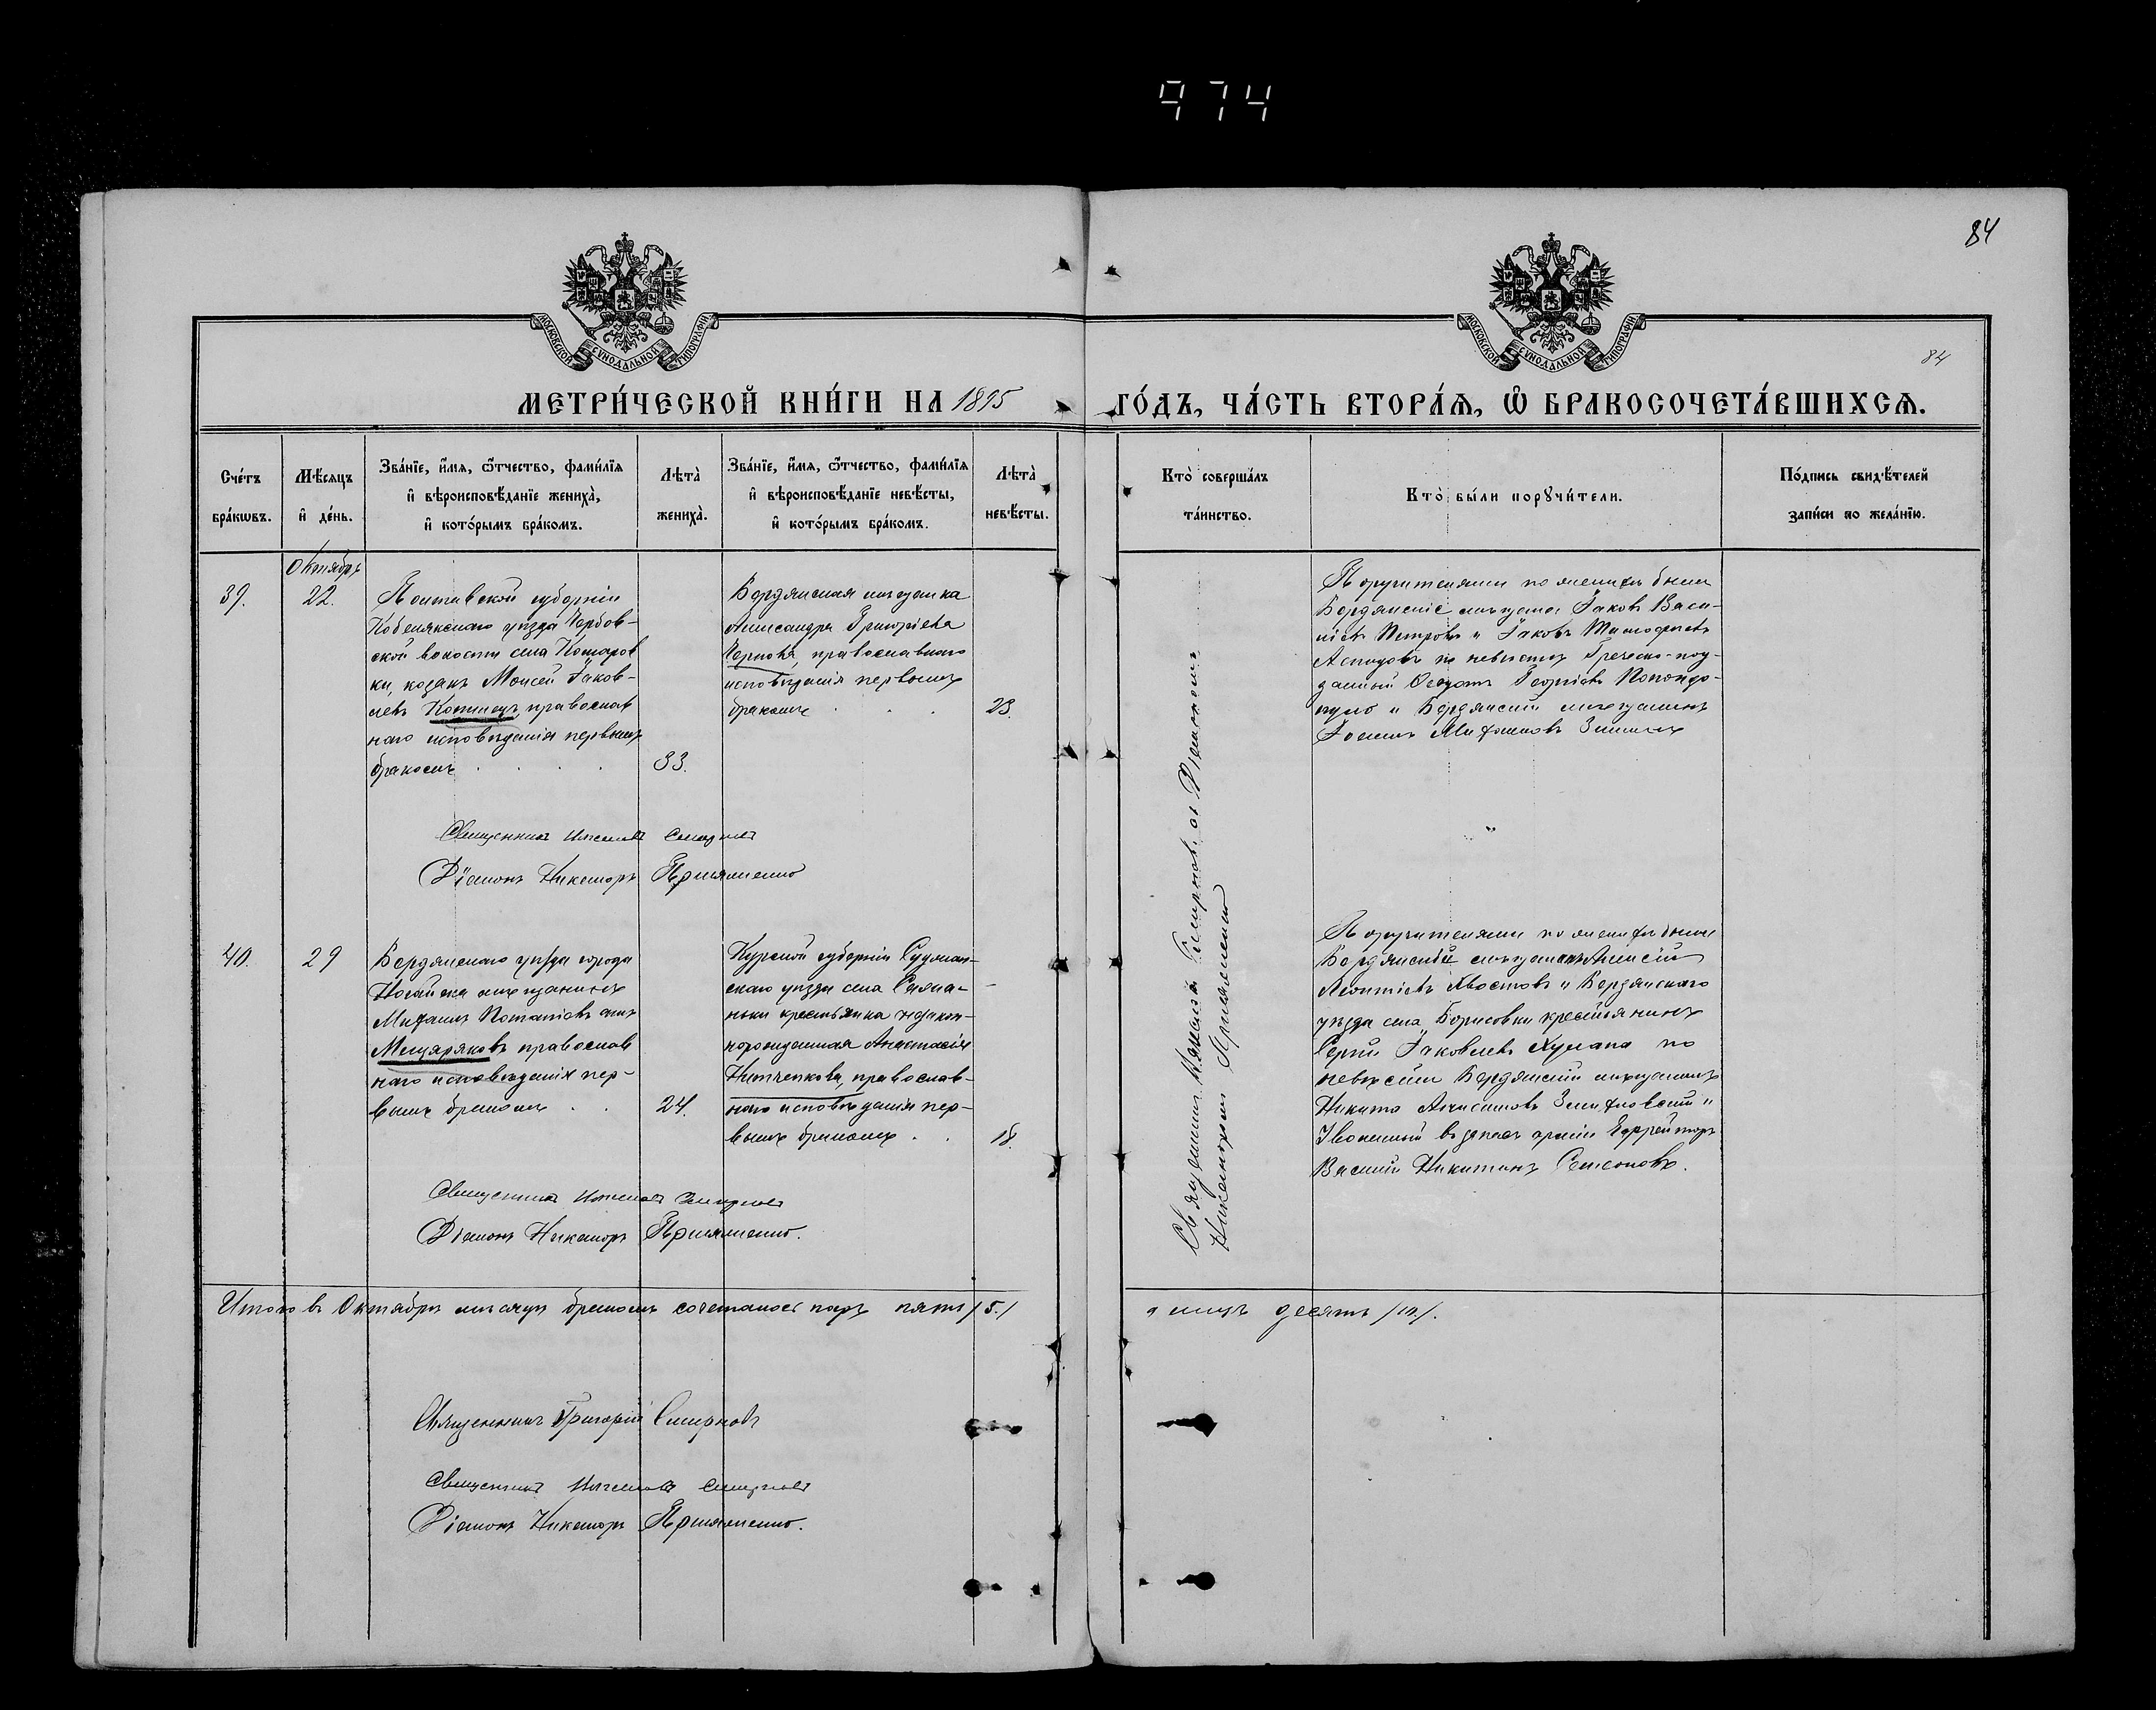 974
84
84
МОСКОВСКОЙ СѴНОДАЛЬНОЙ ТИПОГРАФІИ
МОСКОВСКОЙ СѴНОДАЛЬНОЙ ТИПОГРАФІИ
МЕТРИ́ЧЕСКОЙ КНИ́ГИ НА 1895 ГО́ДЪ, ЧА́СТЬ ВТОРА́Ѧ, Ѽ БРАКОСОЧЕТА́ВШИХСѦ.
Сче́тъ
бра́кѡвъ.
Мѣ́сяцъ
и҆ де́нь.
Зва́нїе, и҆́мя, ѻ҆́тчество, фами́лїя
и҆ вѣроисповѣ́данїе жениха̀,
и҆ кото́рымъ бра́комъ.
Лѣта̀
жениха̀.
Зва́нїе, и҆́мя, ѻ҆́тчество, фами́лїя
и҆ вѣроисповѣ́данїе невѣ́сты,
и҆ кото́рымъ бра́комъ.
Лѣта̀
невѣ́сты.
Кто̀ соверша́лъ
та́инство.
Кто̀ бы́ли порꙋчи́тели.
По́дпись свидѣ́телей
за́писи по жела́нїю.
39.
Октябрь
22.
Полтавской губерніи
Кобелякскаго уѣзда
ской волости села Комаров
ки, козакъ Моисей Іаков-
левъ православ
наго исповѣданія первымъ
бракомъ
33.
Бердянская мѣщанка
Александра Григоріева
Чернова, православнаго
исповѣданія первымъ
бракомъ
23.
Поручителями по женихѣ были
Бердянскіе мѣщане Іаковъ Васи-
ліевъ Петровъ и Іаковъ Тимофеевъ
по невѣстѣ Греческо-под-
данный Ѳеодотъ Георгіевъ
и Бердянскій мѣщанинъ
Священникъ Смирновъ
Діаконъ Никаноръ
Священникъ Смирновъ съ Діакономъ
Никаноромъ
40.
29
Бердянскаго уѣзда города
Ногайска мѣщанинъ
Михаилъ
Мещеряковъ православ
наго исповѣданія пер-
вымъ бракомъ
24.
Курской губерніи Суджан-
скаго уѣзда села
крестьянка незакон-
норожденная Анастасія
православ-
наго исповѣданія пер-
вымъ бракомъ
18.
Поручителями по женихѣ были
Бердянскій мѣщанинъ Алексій
Леонтіевъ Хвостовъ и Бердянскаго
уѣзда села Борисовки крестьянинъ
Сергій Іаковлевъ по
невѣстѣ Бердянскій мѣщанинъ
Никита и
Уволенный въ запасъ арміи Ефрейторъ
Василій Никитинъ
Священникъ Смирновъ
Діаконъ Никаноръ
Итого въ Октябрѣ мѣсяцѣ бракомъ сочеталось паръ пять /5./
а лицъ десять /10/.
Священникъ Григорій Смирновъ
Священникъ Смирновъ
Діаконъ Никаноръ